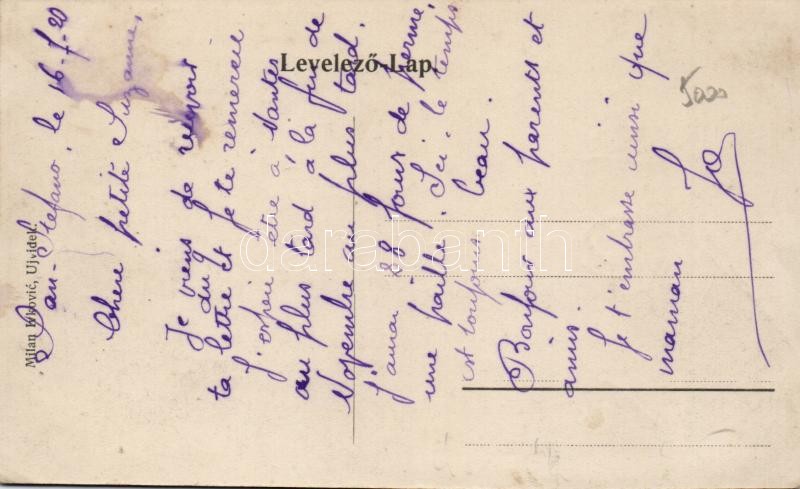 Levelező-Lap.
Milan Ivković, Ujvidek.
San-Stefano, le 16-7-20
Chère petite Suzanne,
Je viens de recevoir
ta lettre du 9 et je te remercie
J'espère être à Nantes
au plus tard à la fin de
Novembre au plus tard.
J'aurai 88 jours de perme,
une paille! Ici le temps
est toujours beau.
Bonjour aux parents et
amis.
Je t'embrasse ainsi que
maman
Jo
5000
darabanth